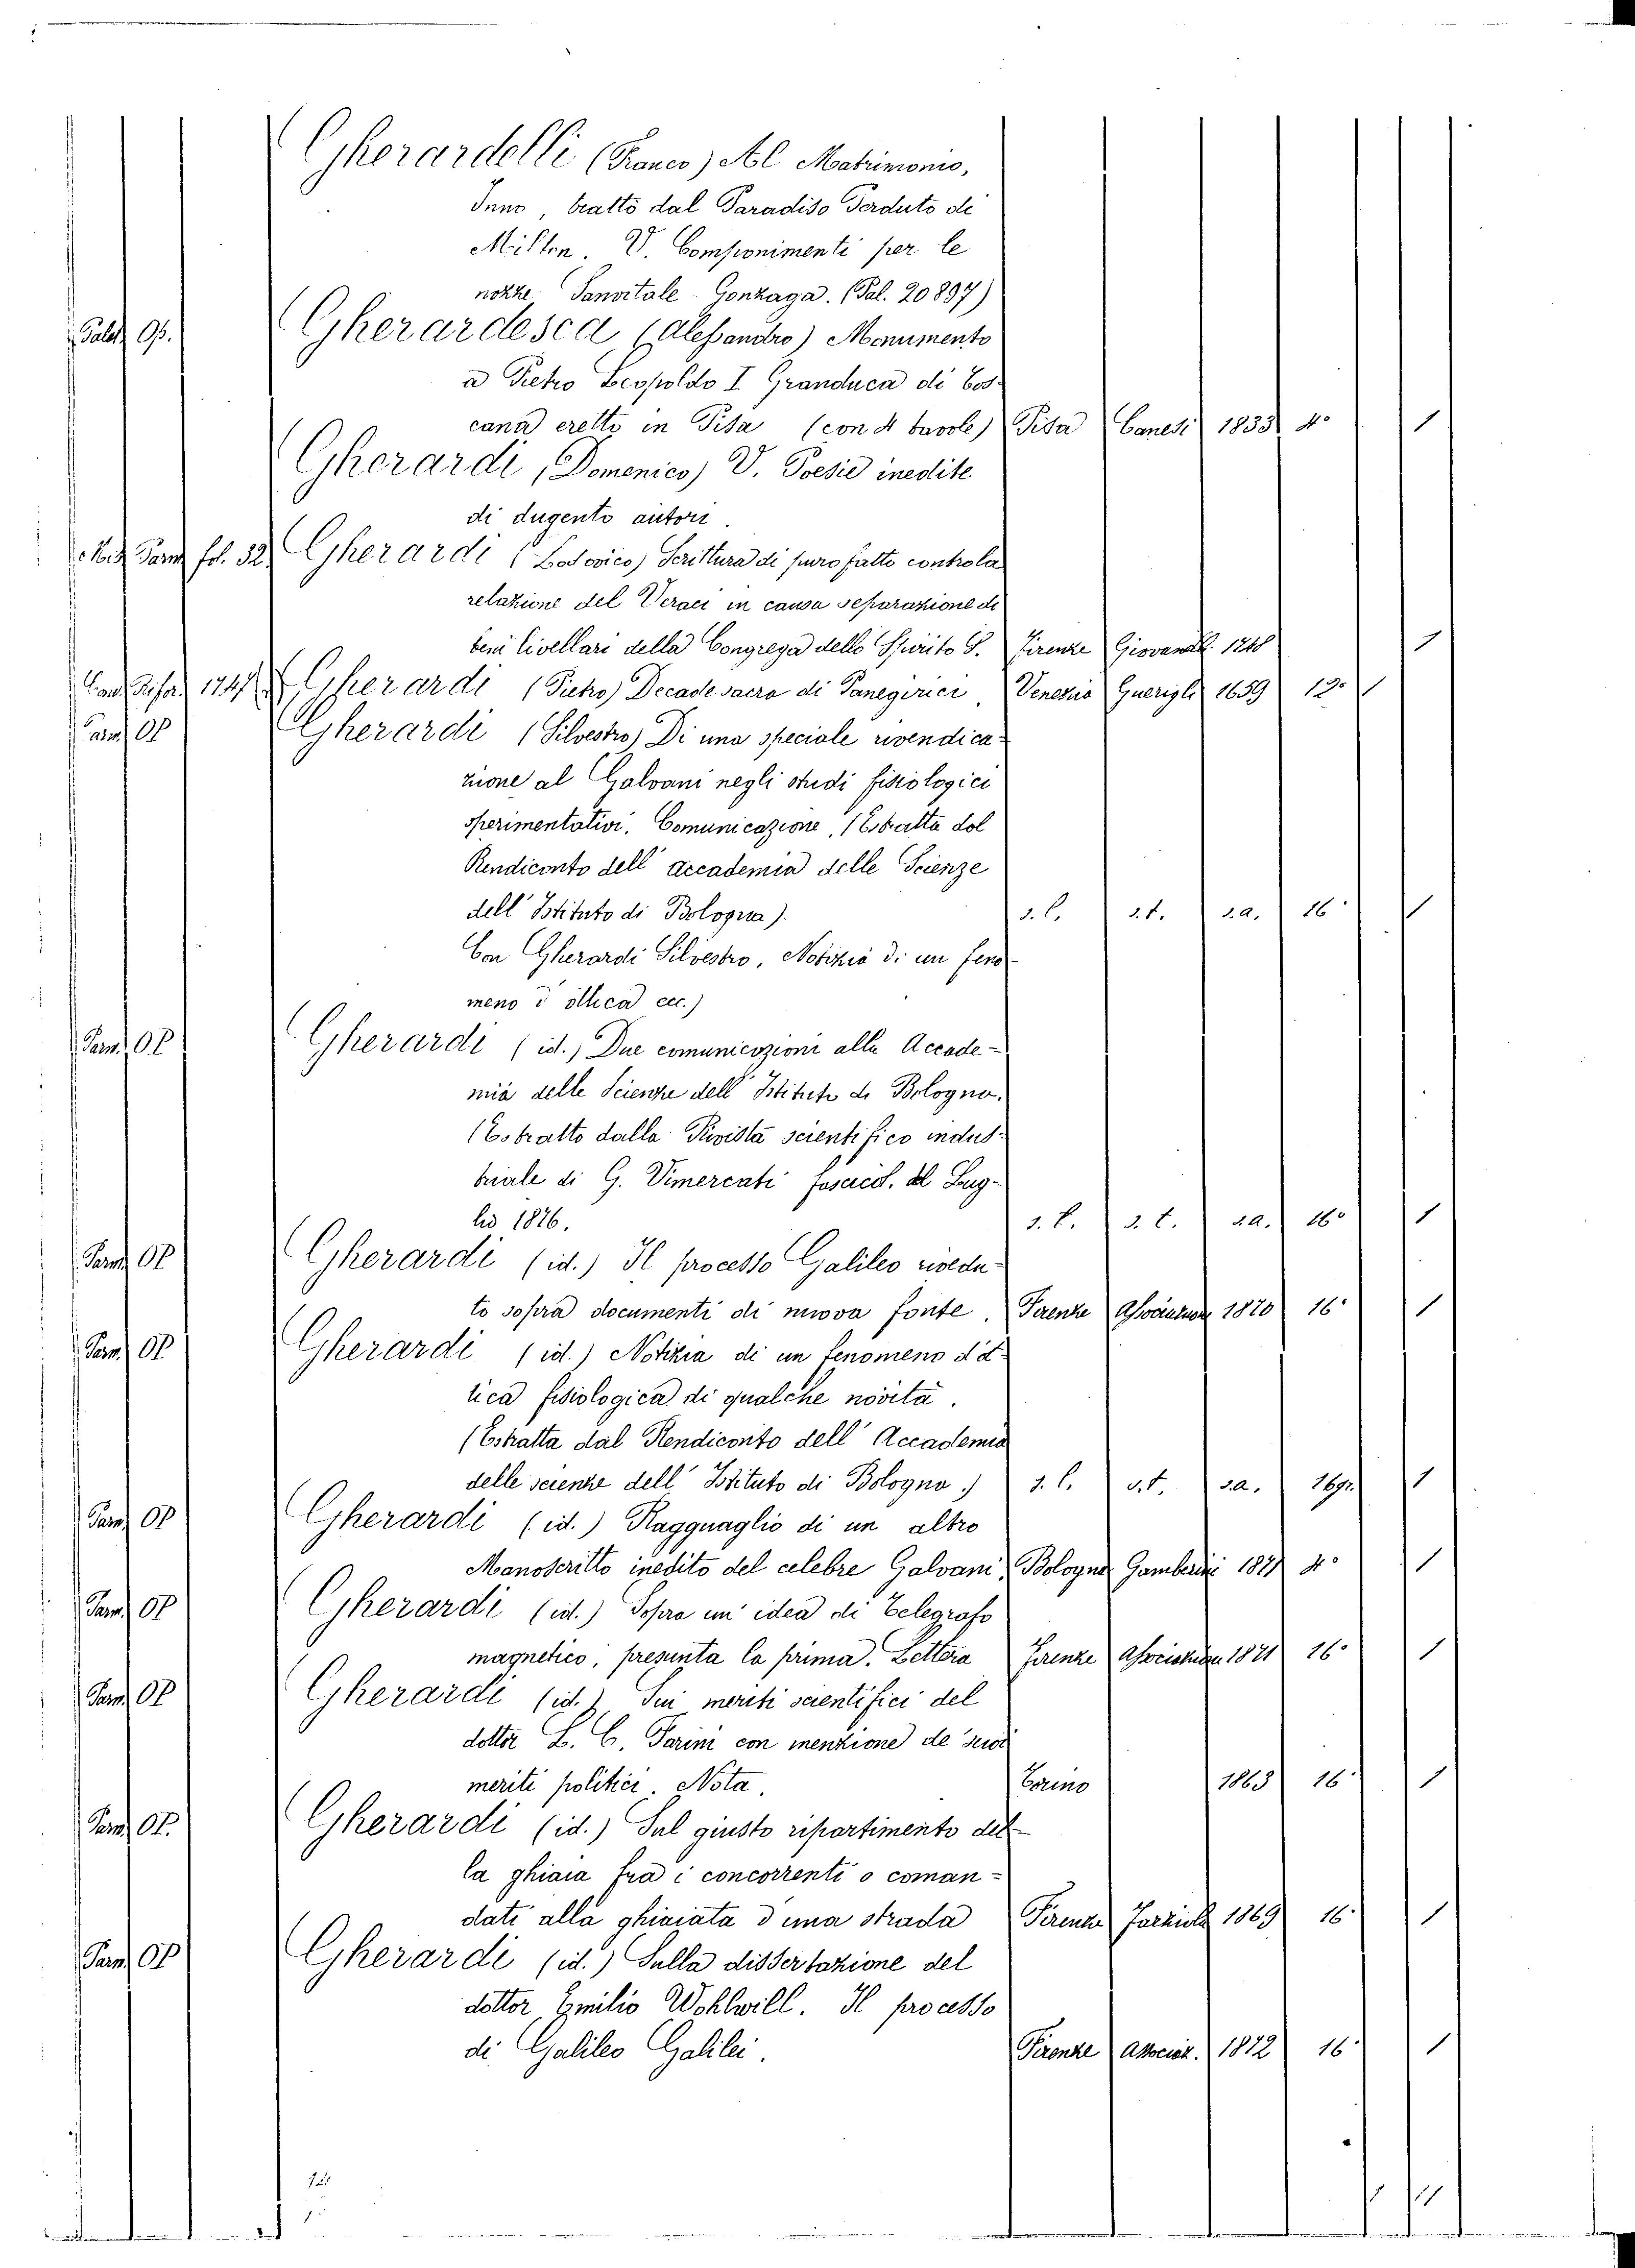 Gherardelli (Franco) Al Matrimonio,
Inno, tratto dal Paradiso Perduto di
Milton. V. Componimenti per le
nozze Sanvitale-Gonzaga. (Pal. 20897)
Palat. Op. Gherardesca (Alessandro) Monumento
a Pietro Leopoldo I Granduca di Tos-
cana eretto in Pisa (con 4 tavole) Pisa Canesi 1833 4° 1
Gherardi, Domenico) V. Poesie inedite
di dugento autori.
Parm fol. 32 Gherardi (Lodovico) Scrittura di puro fatto contro la
relazione del Veraci in causa separazione di
beni livellari della Congrega dello Spirito S. Firenze 1748 1
1747 Gherardi (Pietro) Decade sacra di Panegirici, Venezia Guerigli 1659 12° 1
Parm OP Gherardi (Silvestro) Di una speciale rivendica-
zione al Galvani negli studi fisiologici
sperimentativi. Comunicazione, (Estratta dol
Rendiconto dell' Accademia delle Scienze
dell' Istituto di Bologna). s. l. s. t. s. a. 16° 1
Con Gherardi Silvestro, Notizia di un feno-
meno d'ottica ecc.)
Parm. OP Gherardi (id.) Due comunicazioni alla Accade-
mia delle Scienze dell' Istituto di Bologna.
(Estratto dalla Rivista scientifico indus-
triale di G. Vimercati fascicol. di Lug-
lio 1876. s. l. s. t. s. a. 16° 1
Parm OP Gherardi (id.) Il processo Galileo rivedu-
to sopra documenti di nuova fonte. Firenze Associazione 1870 16° 1
Parm OP Gherardi (id.) Notizia di un fenomeno d'ot-
tica fisiologica di qualche novità.
(Estratta dal Rendiconto dell' Accademia
delle scienze dell' Istituto di Bologna.) s. l. s. t. s. a. 16gr. 1
Parm OP Gherardi (id.) Ragguaglio di un altro
Manoscritto inedito del celebre Galvani, Bologna Gamberini 1871 4° 1
Parm OP Gherardi (id.) Sopra un' idea di Telegrafo
magnetico, presunta la prima. Lettera Firenze Associazione 1871 16° 1
Parm OP Gherardi (id.) Sui meriti scientifici del
dottor L. C. Farini con menzione de' suoi
meriti politici. Nota. Torino 1863 16° 1
Parm OP. Gherardi (id.) Sul giusto ripartimento del-
la ghiaia fra i concorrenti o coman-
dati alla ghiaiata d'una strada Firenze 1869 16° 1
Parm OP Gherardi (id.) Sulla dissertazione del
dottor Emilio Wohlwill. Il processo
di Galileo Galilei. Firenze Associaz. 1872 16° 1